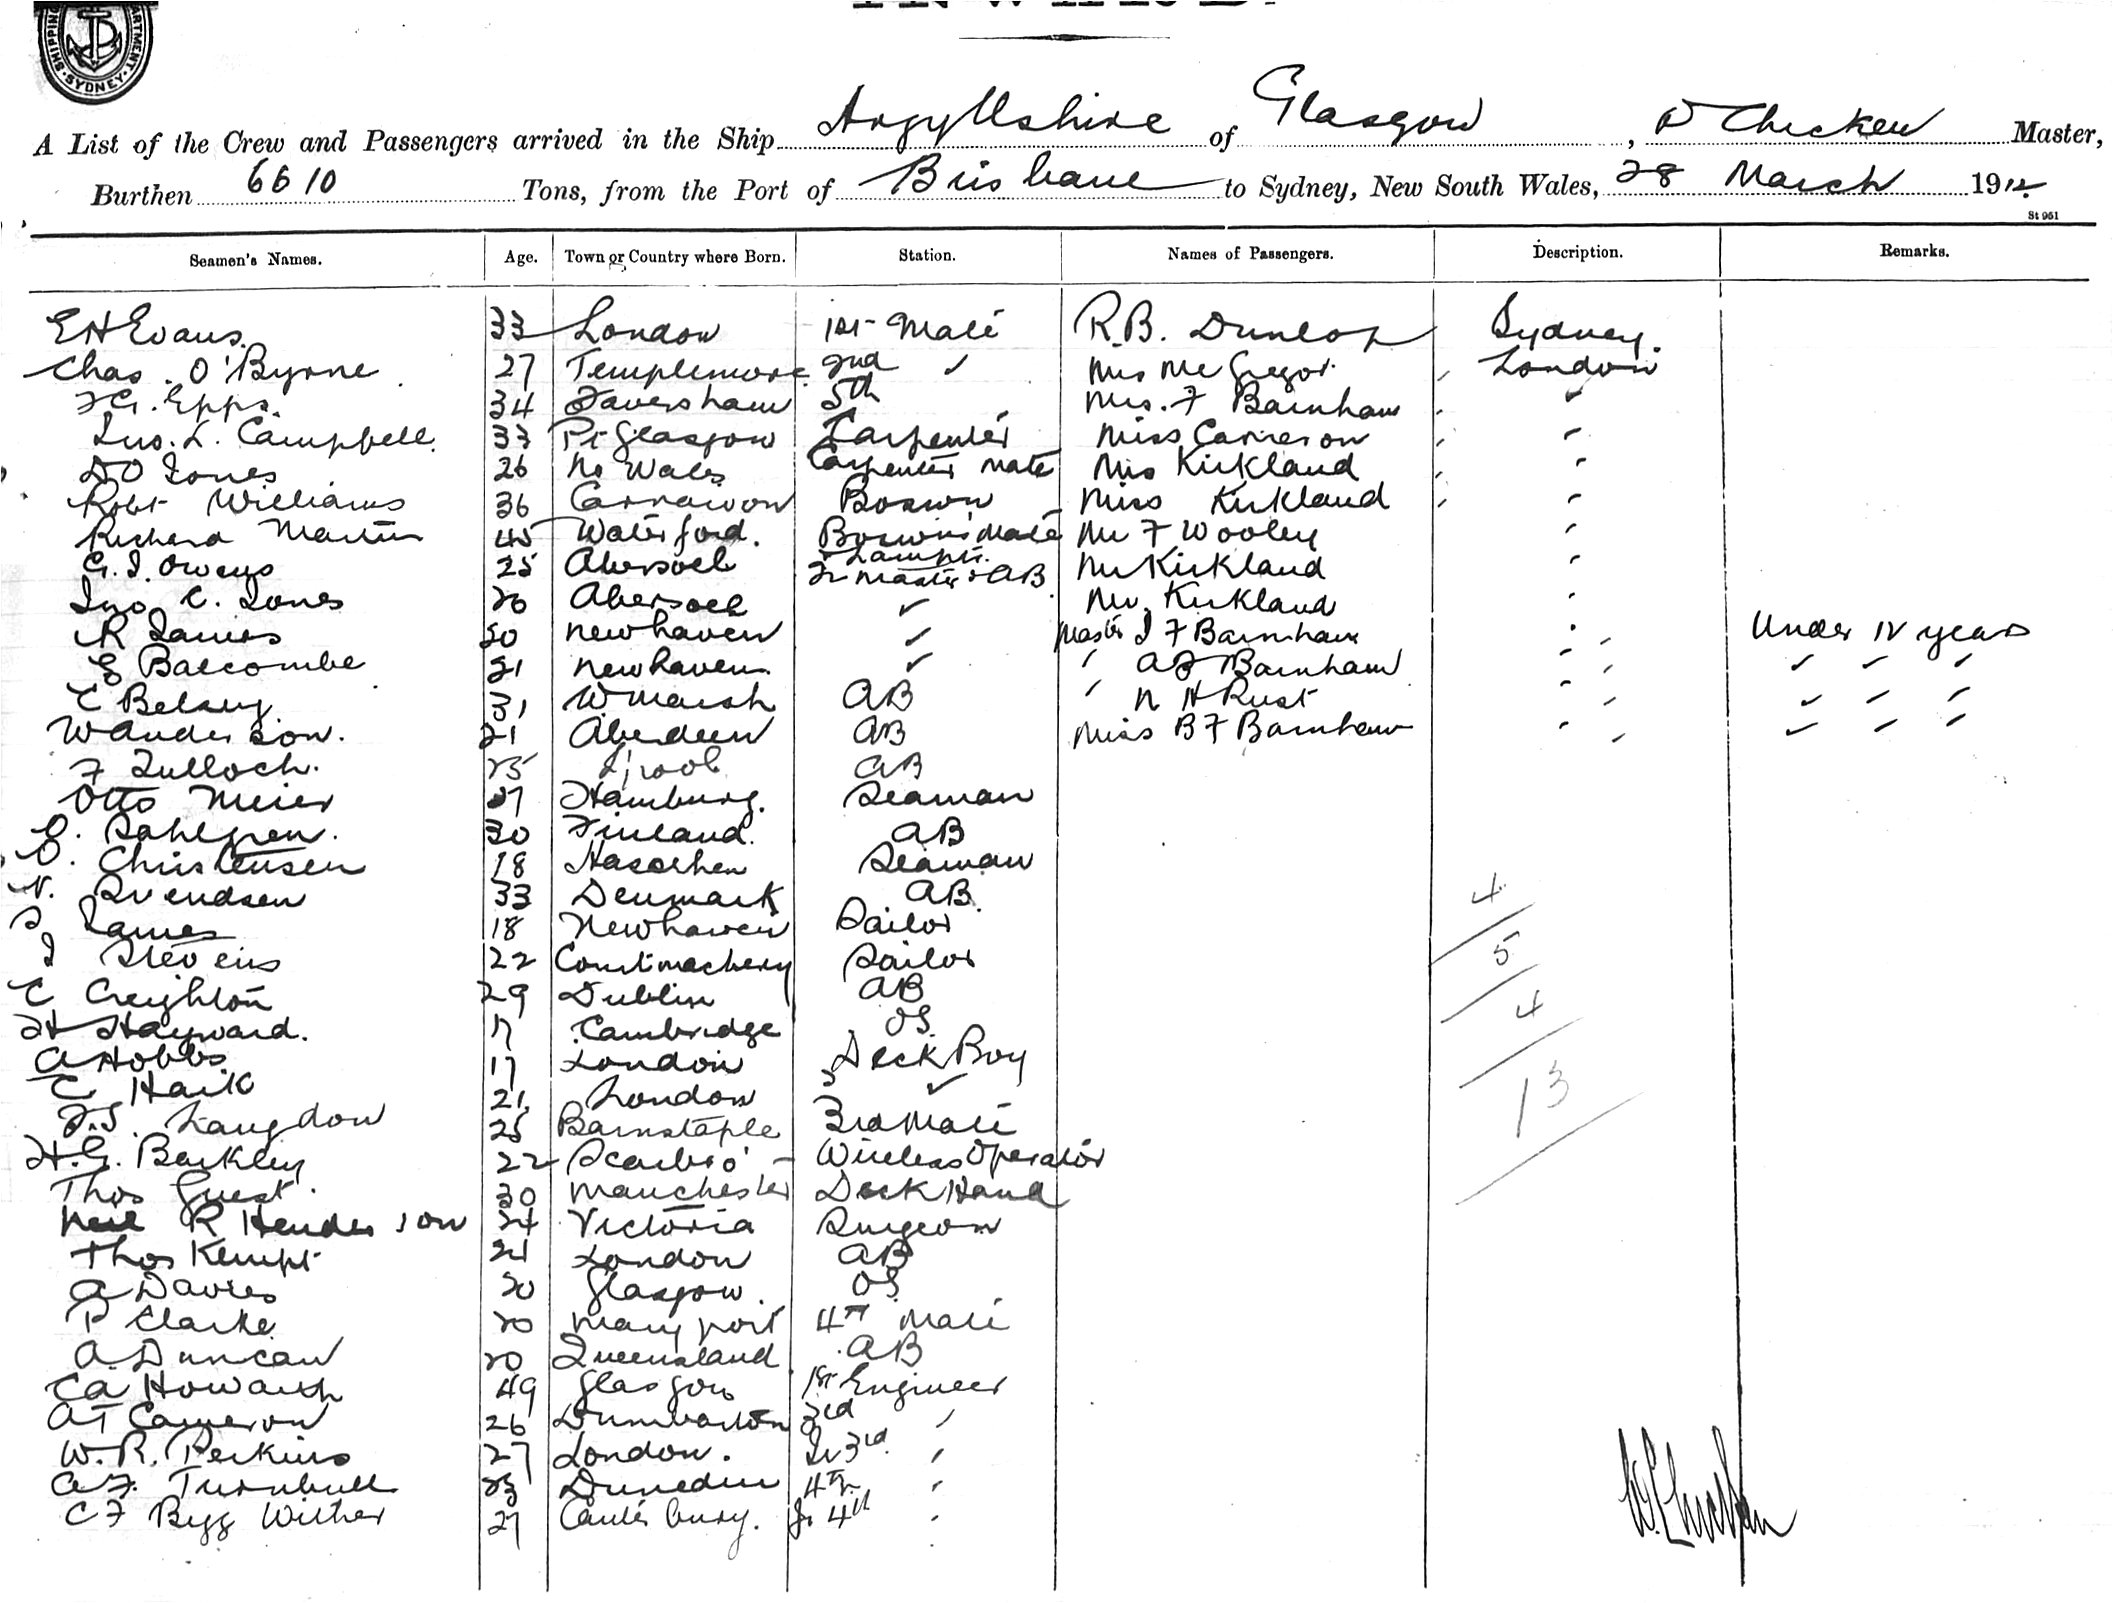 SHIPPING DEPARTMENT. SYDNEY.
INWARD.
A List of the Crew and Passengers arrived in the Ship Argyllshire of Glasgow, W Chicken Master,
Burthen 6610 Tons, from the Port of Brisbane to Sydney, New South Wales, 28 March 1912
St 951
Seamen's Names. Age. Town or Country where Born. Station. Names of Passengers. Description. Remarks.
E H Evans. 33 London 1st Mate R.B. Dunlop Sydney.
Chas. O'Byrne 27 Templemore 2nd ✓ Mrs McGregor London
F G. Epps. 34 Faversham 5th Mrs. F Barnham
Jno. L. Campbell. 33 Pt Glasgow Carpenter Miss Cameron
D O Jones 26 No Wales Carpenter Mate Mrs Kirkland
Robt Williams 36 Carnarvon Boswn Miss Kirkland
Richard Martin 45 Waterford. Boswins Mate Mr F Wooley
G. J. Owens 25 Abersoch Lamps. Master & AB Mr Kirkland
Jno C. Jones 26 Abersoch ✓ Mr. Kirkland
R James 50 Newhaven ✓ Master J F Barnham Under 12 years
E Balcombe 21 Newhaven. ✓ " A F Barnham ✓ ✓ ✓
C Belsey 31 W Marsh AB " N H Rust ✓ ✓ ✓
W Anderson. 21 Aberdeen AB Miss B F Barnham ✓ ✓ ✓
F Tulloch. 25 L'pool AB
Otto Meier 27 Hamburg. Seaman
E. Dahlgren. 30 Finland. AB
Christensen 18 Seaman
N. Svendsen 33 Denmark AB.
S James 18 Newhaven Sailor
J Stevens 22 Courtmachery Sailor
C Creighton 29 Dublin AB
H Hayward. 17 Cambridge OS.
A Hobbs 17 London Deck Boy
C Haik 21. London ✓
F.S. Langdon 25 Barnstaple 3rd Mate
H.G. Barkley 22 Scarbro' - Wireless Operator
Thos Guest. 30 Manchester Deck Hand
Neil R Henderson 24 Victoria Surgeon
Thos Kempt 21 London AB
A Davies 20 Glasgow. OS
P Clarke 20 Maryport 4th Mate
A. Duncan 20 Queensland AB
C A Howarth 49 Glasgow 1st Engineer
A T Cameron 26 Dumbarton 3rd "
W. R. Perkins 27 London. Jr 3rd "
A F. Turnbull 23 Dunedin 4th "
C F Bigg Wither 27 Canterbury. Jr 4th "
4
5
4
13
W. Chicken